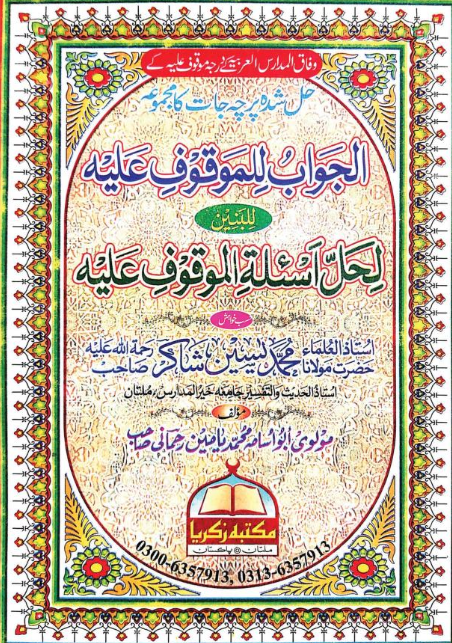 وفاق المدارس العربیہ کے درجہ موقوف علیہ کے
حل شدہ پرچہ جات کا مجموعہ
الجَوابُ لِلمَوقوفِ عَلَیه
لِلبَنِیْن
لِحَلِّ اَسْئِلَةِ المَوقوفِ عَلَیه
حسب خواہش
استاذ العلماء حضرت مولانا محمد یٰسین شاکر صاحب رحمة الله علیه
استاذ الحدیث والتفسیر جامعہ خیر المدارس، ملتان
مؤلف
مولوی ابو اسامہ محمد یامین رحمانی صاحب
مکتبہ زکریا
ملتان پاکستان
0300-6357913, 0313-6357913